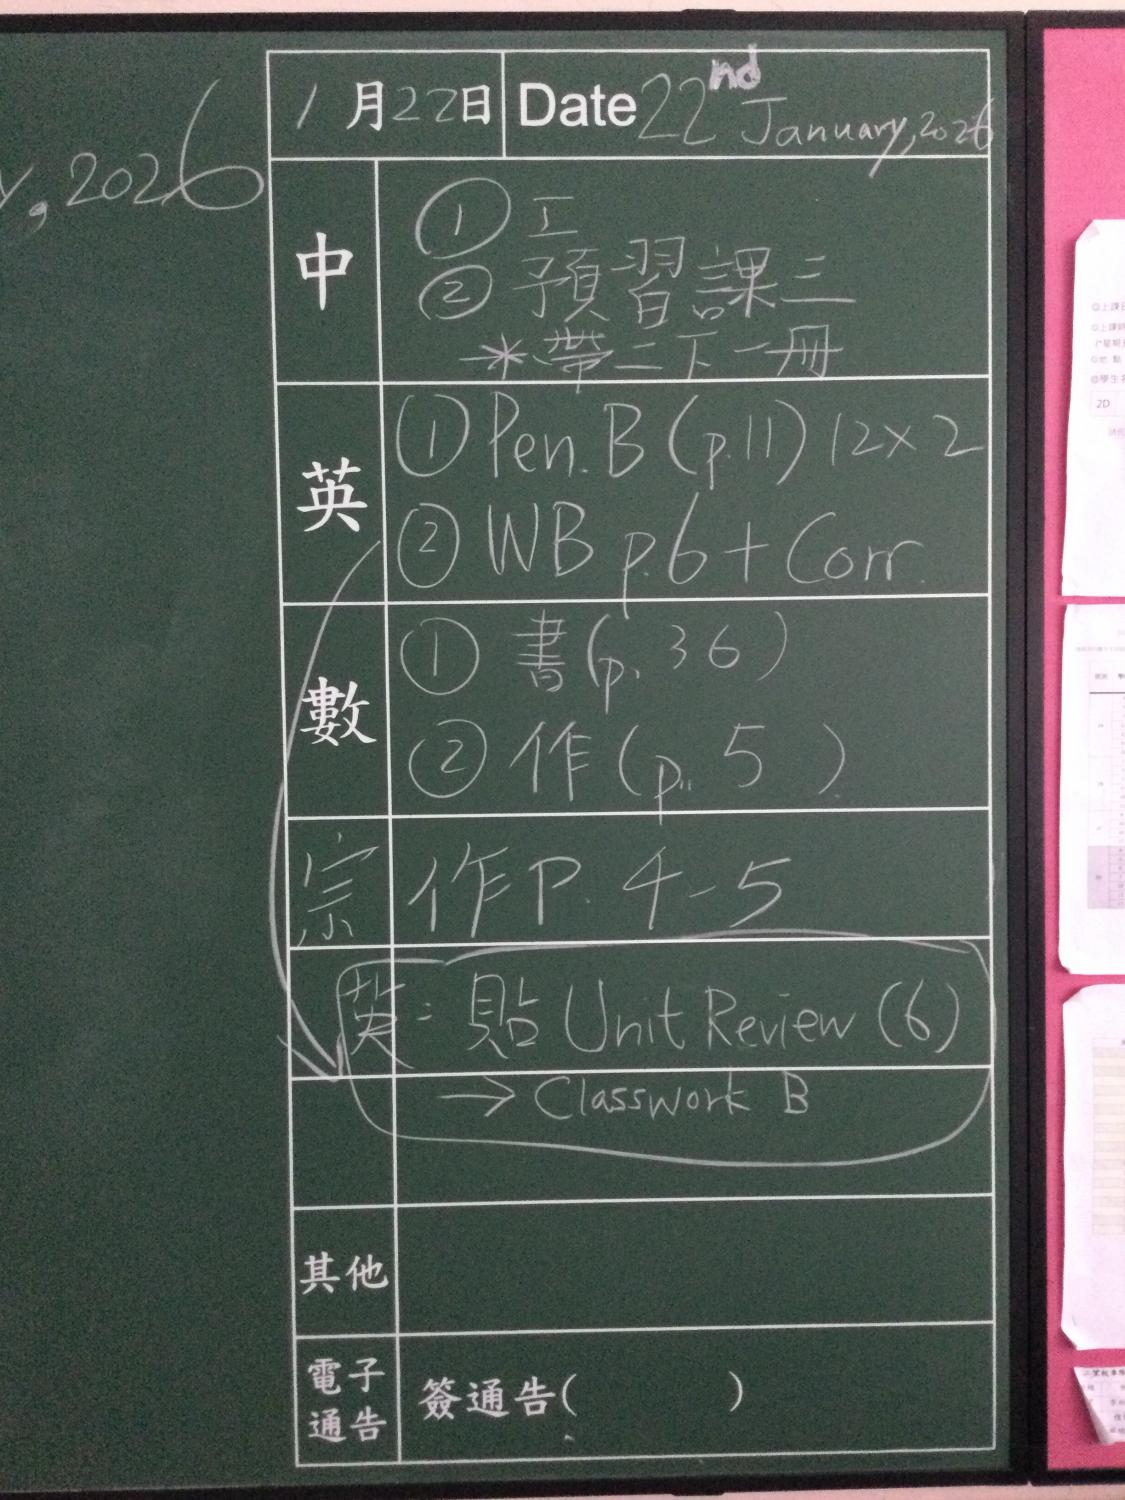 y, 2026
1月22日 Date 22nd January, 2026
中
① 工
② 預習課三
*帶二下一冊
英
① Pen. B (p.11) 12x2
② WB p.6 + Corr.
數
① 書(p. 36)
② 作(p. 5 )
宗 作P. 4-5
英: 貼 Unit Review (6)
→ Classwork B
其他
電子通告 簽通告( )
2D